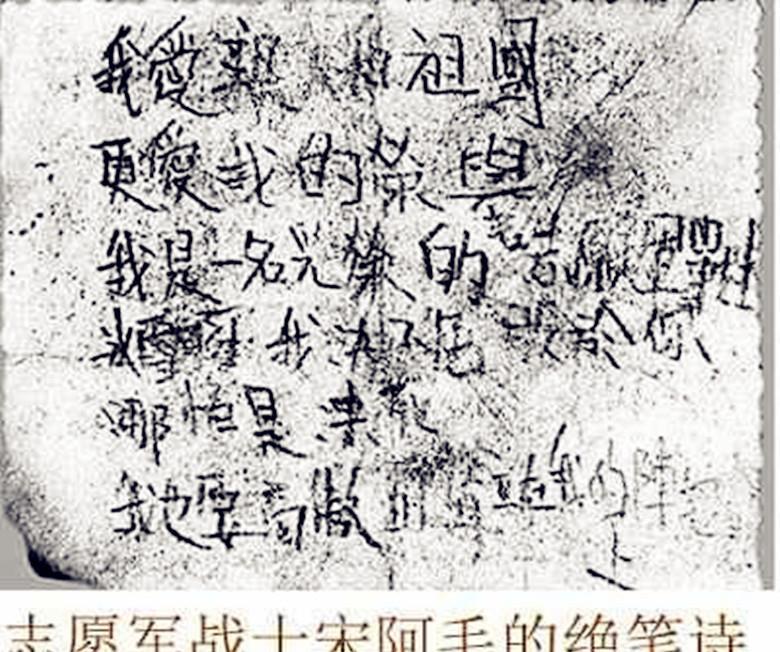 我愛親 祖國
更愛我的榮譽
我是一名光榮的志願軍戰士
冰雪 我决不屈 於你
哪怕是凍
我也要高傲 在我的陣地上
志愿军战士宋阿毛的绝笔诗